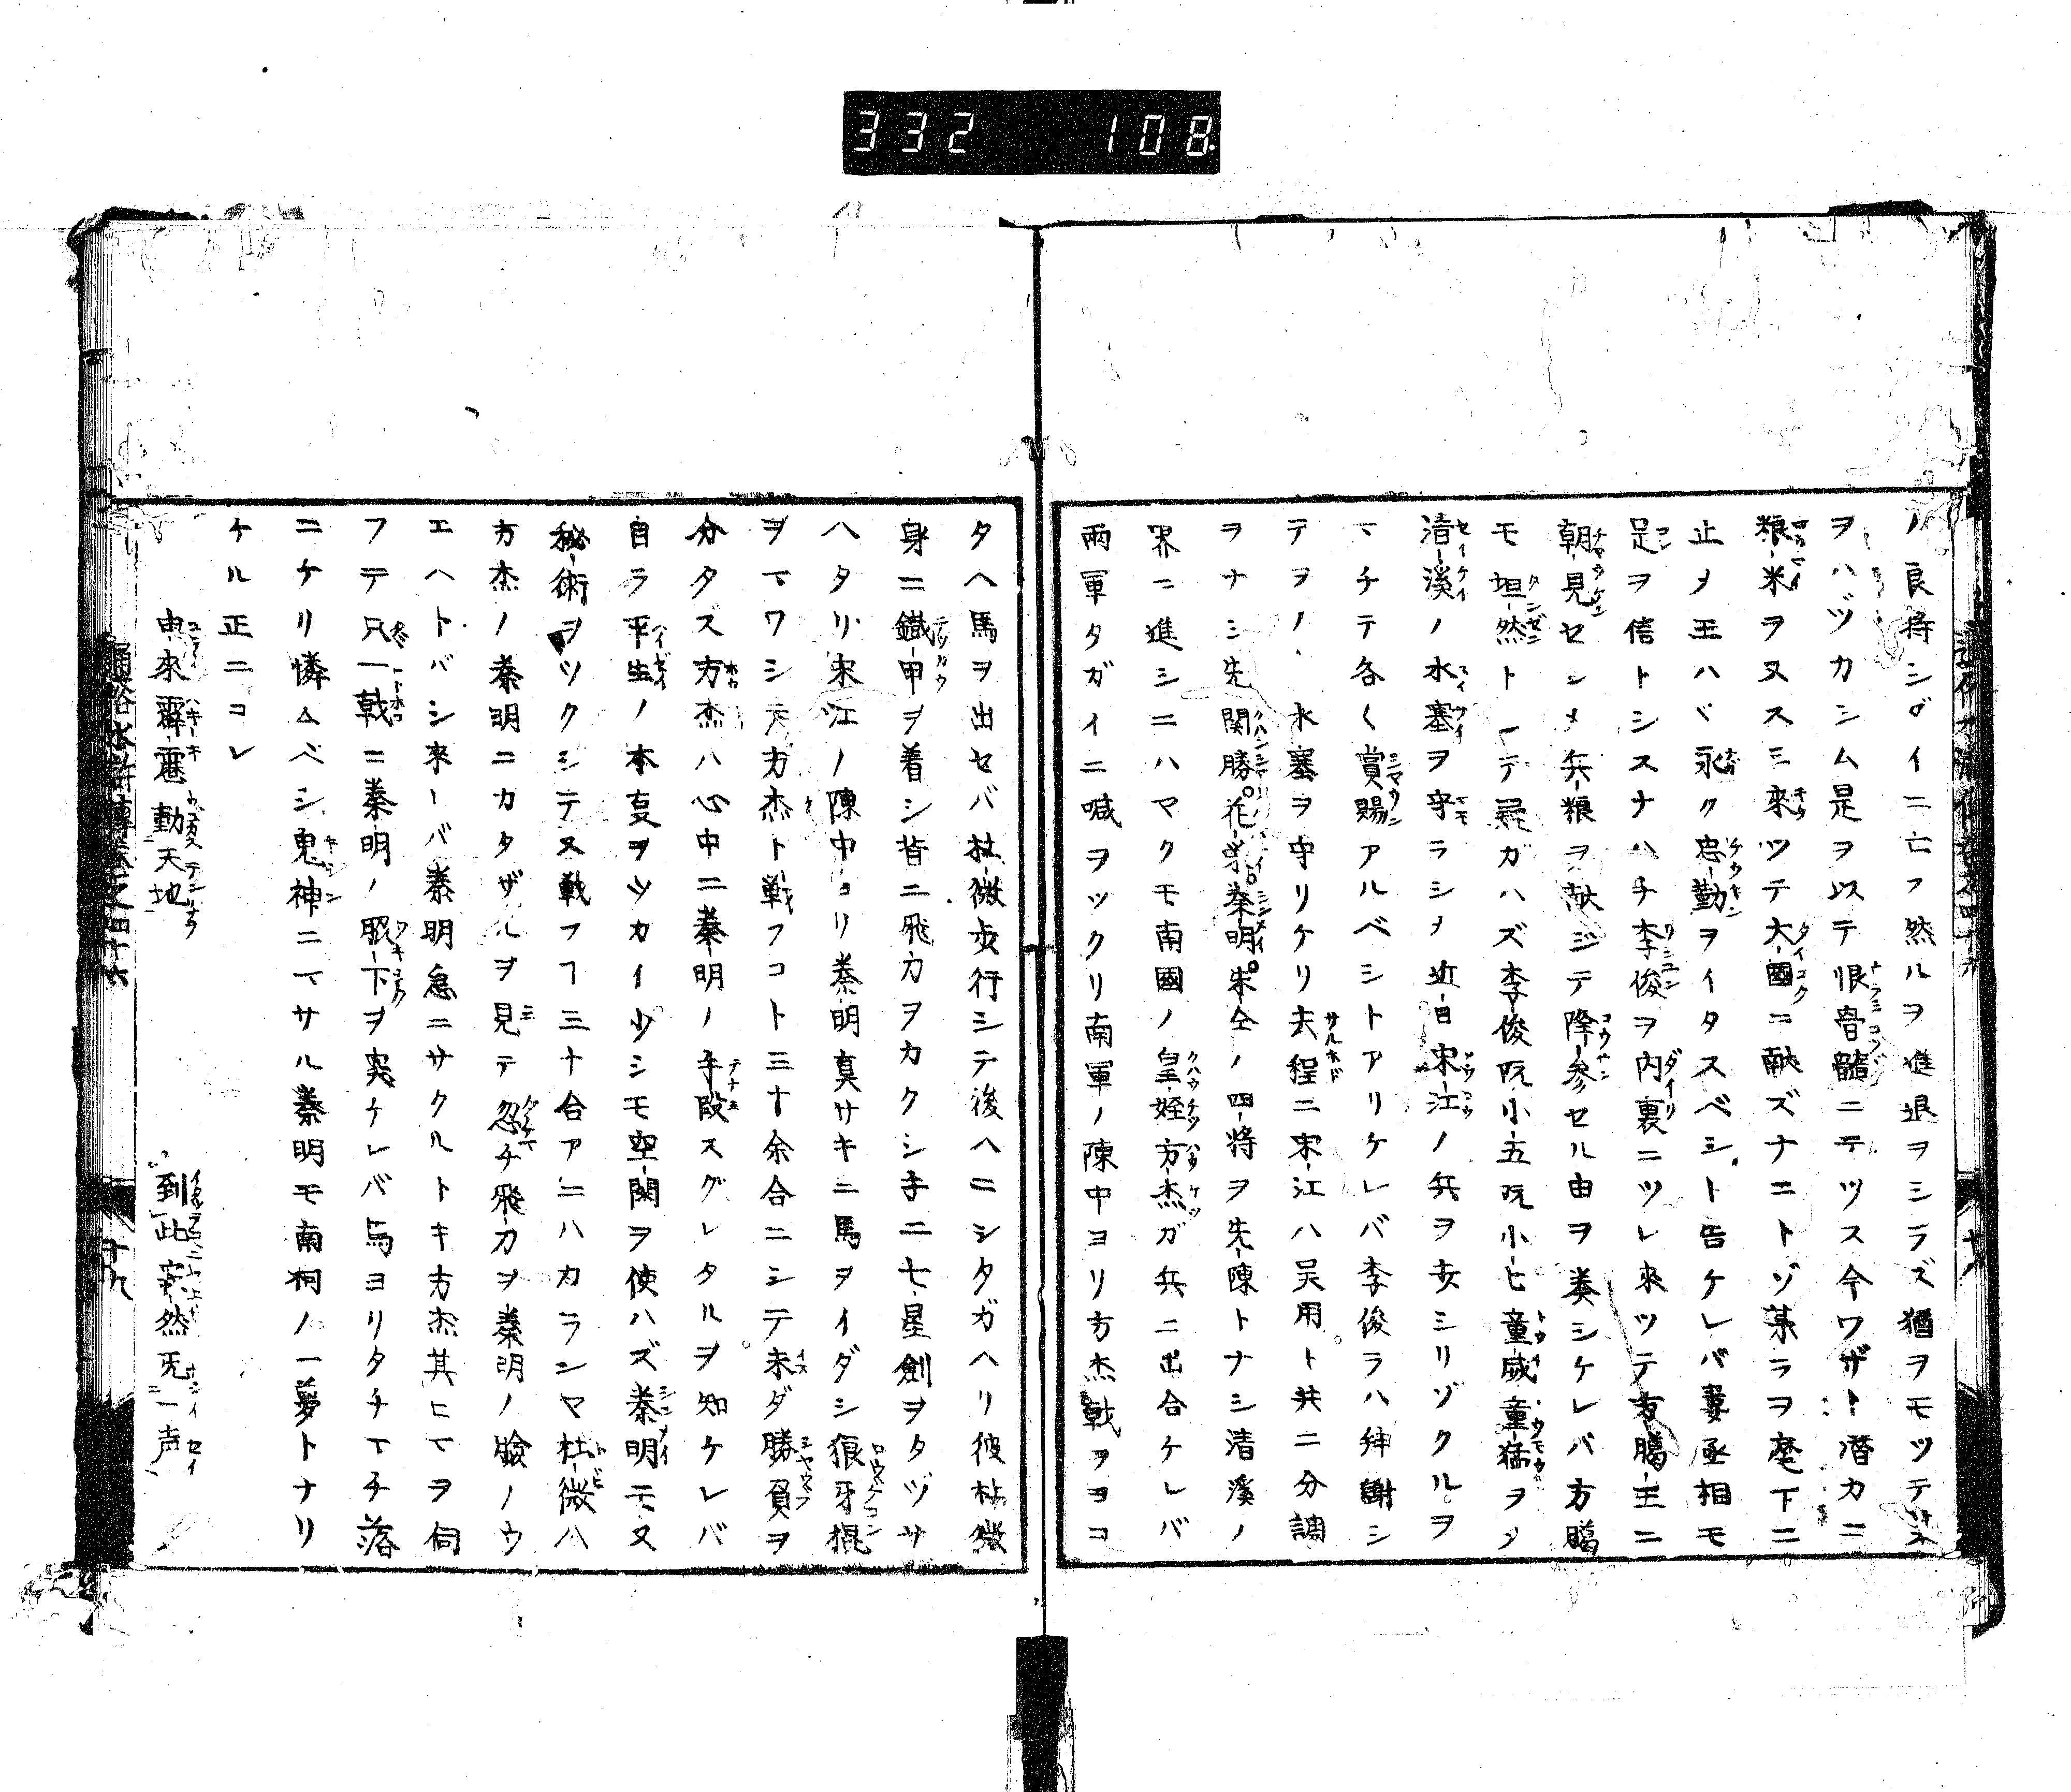 332 108
ノ良将シダイニ亡フ然ルヲ進退ヲシラズ猶ヲモツテ
ヲハヅカシム是ヲ以テ恨骨髄ニテツス今ワザト潜カニ
粮米ヲヌスミ來ツテ大國ニ献ズナニトゾ某ラヲ麾下ニ
止メ玉ハヾ永ク忠勤ヲイタスベシト告ケレバ婁丞相モ
足ヲ信トシスナハチ李俊ヲ内裏ニツレ來ツテ方臈王ニ
朝見セシメ兵粮ヲ献ジテ降参セル由ヲ奏シケレバ方臈
モ坦然トシテ疑ガハズ李俊阮小五阮小七童威童猛ヲメ
清溪ノ水塞ヲ守ラシメ近日宋江ノ兵ヲ
マチテ各〱賞賜アルベシトアリケレバ李俊ラハ拝謝シ
テヲノヽ水塞ヲ守リケリ去程ニ宋江ハ呉用ト共ニ分調
ヲナシ先関勝花栄秦明朱仝ノ四将ヲ先陳トナシ清溪ノ
界ニ進シニハマクモ南國ノ皇姪方杰ガ兵ニ出合ケレバ
兩軍タガイニ喊ヲツクリ南軍ノ陳中ヨリ方杰戟ヲヨコ
タヘ馬ヲ出セバ杜微歩行シテ後ヘニシタガヘリ彼杜微
身ニ鐵甲ヲ着シ背ニ飛刀ヲカクシ手ニ七星劍ヲタヅサ
ヘタリ宋江ノ陳中ヨリ秦明真サキニ馬ヲイダシ狼牙棍
ヲマワシテ方杰ト戦フコト三十余合ニシテ未ダ勝負ヲ
分タズ方杰ハ心中ニ秦明ノ手段スグレタルヲ知ケレバ
自ラ平生ノ本夏ヲツカイ少シモ空閑ヲ使ハズ秦明モ又
秘術ヲツクシテ又戦フフ三十合アニハカランヤ杜微ハ
方杰ノ秦明ニカタザルヲ見テ忽チ飛刀ヲ秦明ノ臉ノウ
エヘトバシ來ーバ秦明急ニサクルトキ方杰其ヒマヲ伺
フテ只一戟ニ秦明ノ脇下ヲ突ケレバ馬ヨリタチマチ落
ニケリ憐ムベシ鬼神ニマサル秦明モ南柯ノ一夢トナリ
ケル正ニコレ
由來霹靂動天地
到此寂然旡一声
通俗水滸傳巻之四十六
十九